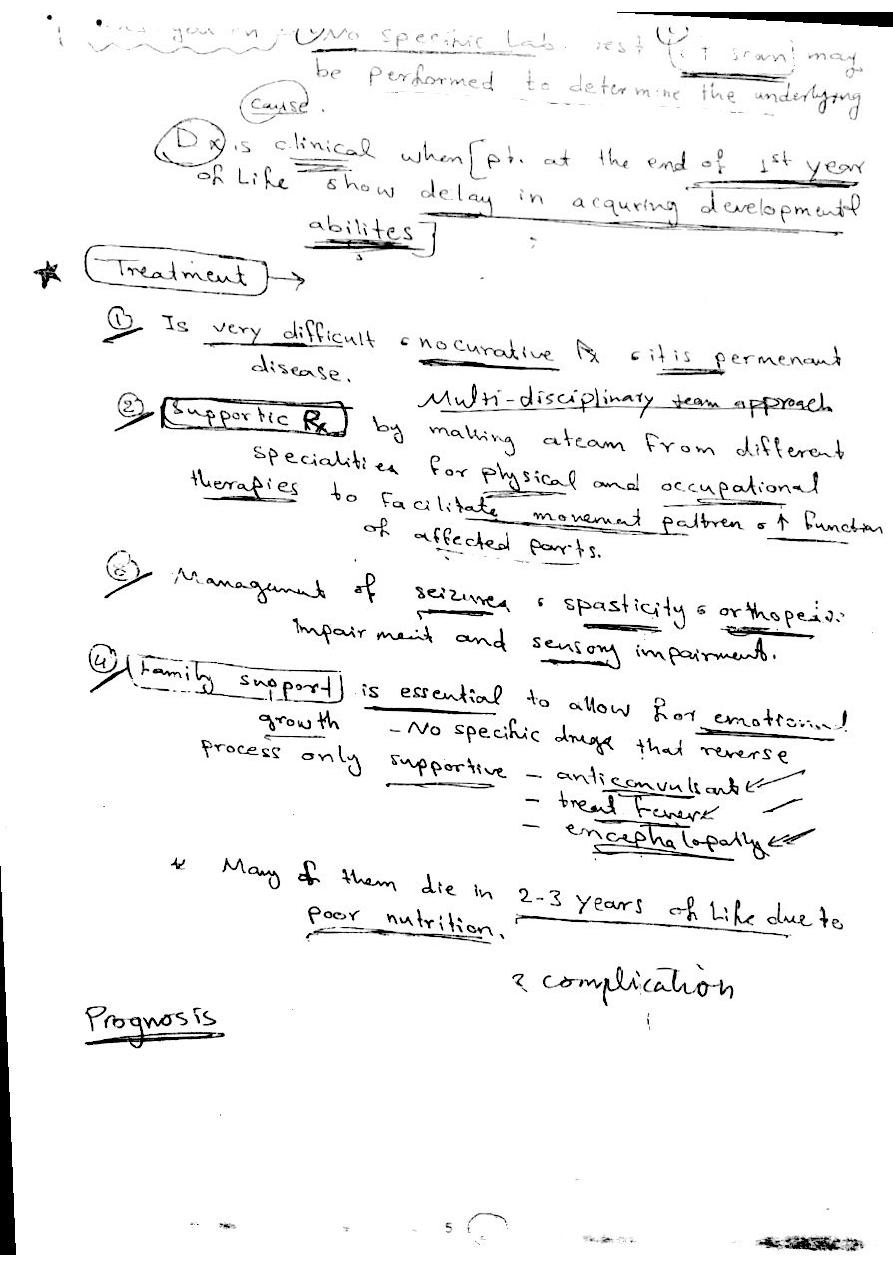 No specific Lab. test (CT scan) may
be performed to determine the underlying
cause.
Dx is clinical when [pt. at the end of 1st year
of Life show delay in acquring developmentl
abilites]
★ Treatment →
① Is very difficult , no curative Rx , it is permenant
disease.
Multi-disciplinary team approach
② Supportic Rx by making ateam from different
specialities for physical and occupational
therapies to facilitate movement pattren , ↑ function
of affected parts.
Management of seizures , spasticity , orthopeidic
impairment and sensory impairment.
④ Family support is essential to allow for emotional
growth - No specific drugs that reverse
process only supportive - anticonvulsant
- treat fever
- encephalopathy
* Many of them die in 2-3 years of Life due to
poor nutrition.
& complication
Prognosis
5